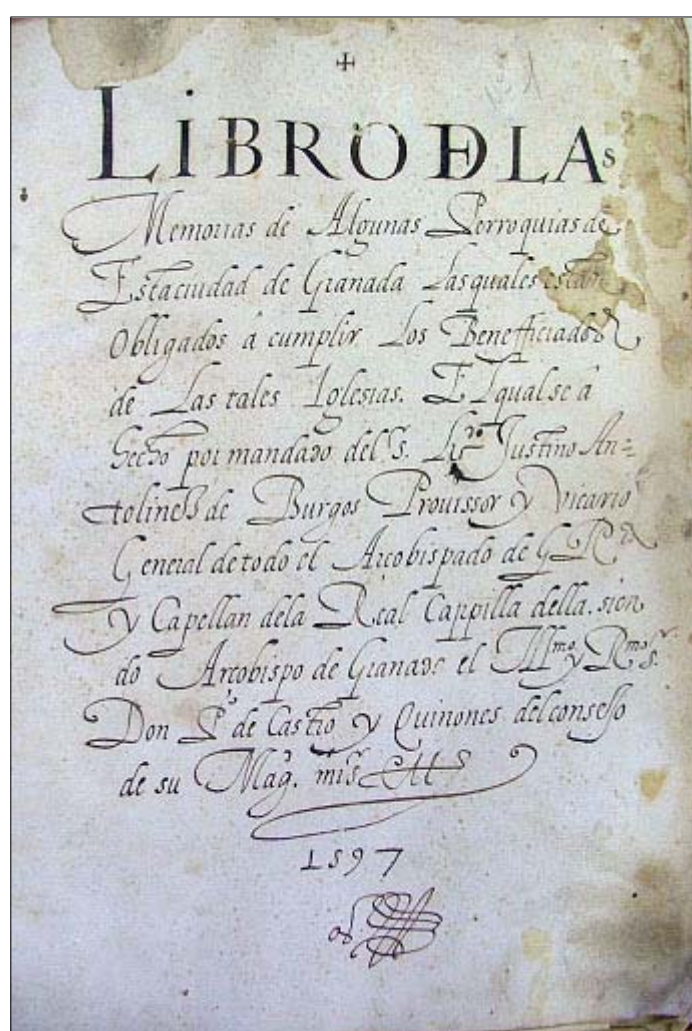 +
LIBRO DE LAs
Memorias de Algunas Perroquias de
Esta ciudad de Granada Las quales estan
Obligados á cumplir Los Benefficiados
de Las tales Iglesias. El qual se á
hecho por mandado del s.r Lic.do Justino An=
tolinez de Burgos Prouissor y Vicario
General de todo el Arcobispado de GR.da
y Capellan de la Real Cappilla della. sien
do Arçobispo de Granada el Ill.mo y R.mo s.r
Don P.o de Castro y Quinones del consejo
de su Mag.
1597